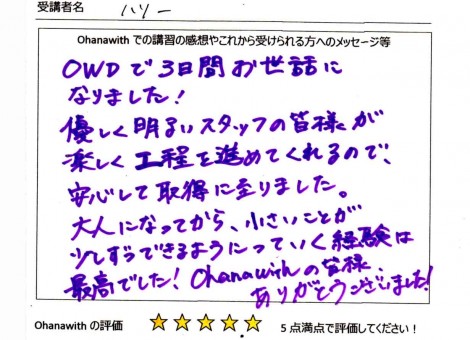 受講者名 ハリー
Ohanawith での講習の感想やこれから受けられる方へのメッセージ等
OWDで3日間お世話に
なりました!
優しく明るいスタッフの皆様が
楽しく工程を進めてくれるので、
安心して取得に至りました。
大人になってから、小さいことが
少しずつできるようになっていく経験は
最高でした! Ohanawithの皆様、
ありがとうございました!
Ohanawith の評価 ★★★★★ 5 点満点で評価してください!